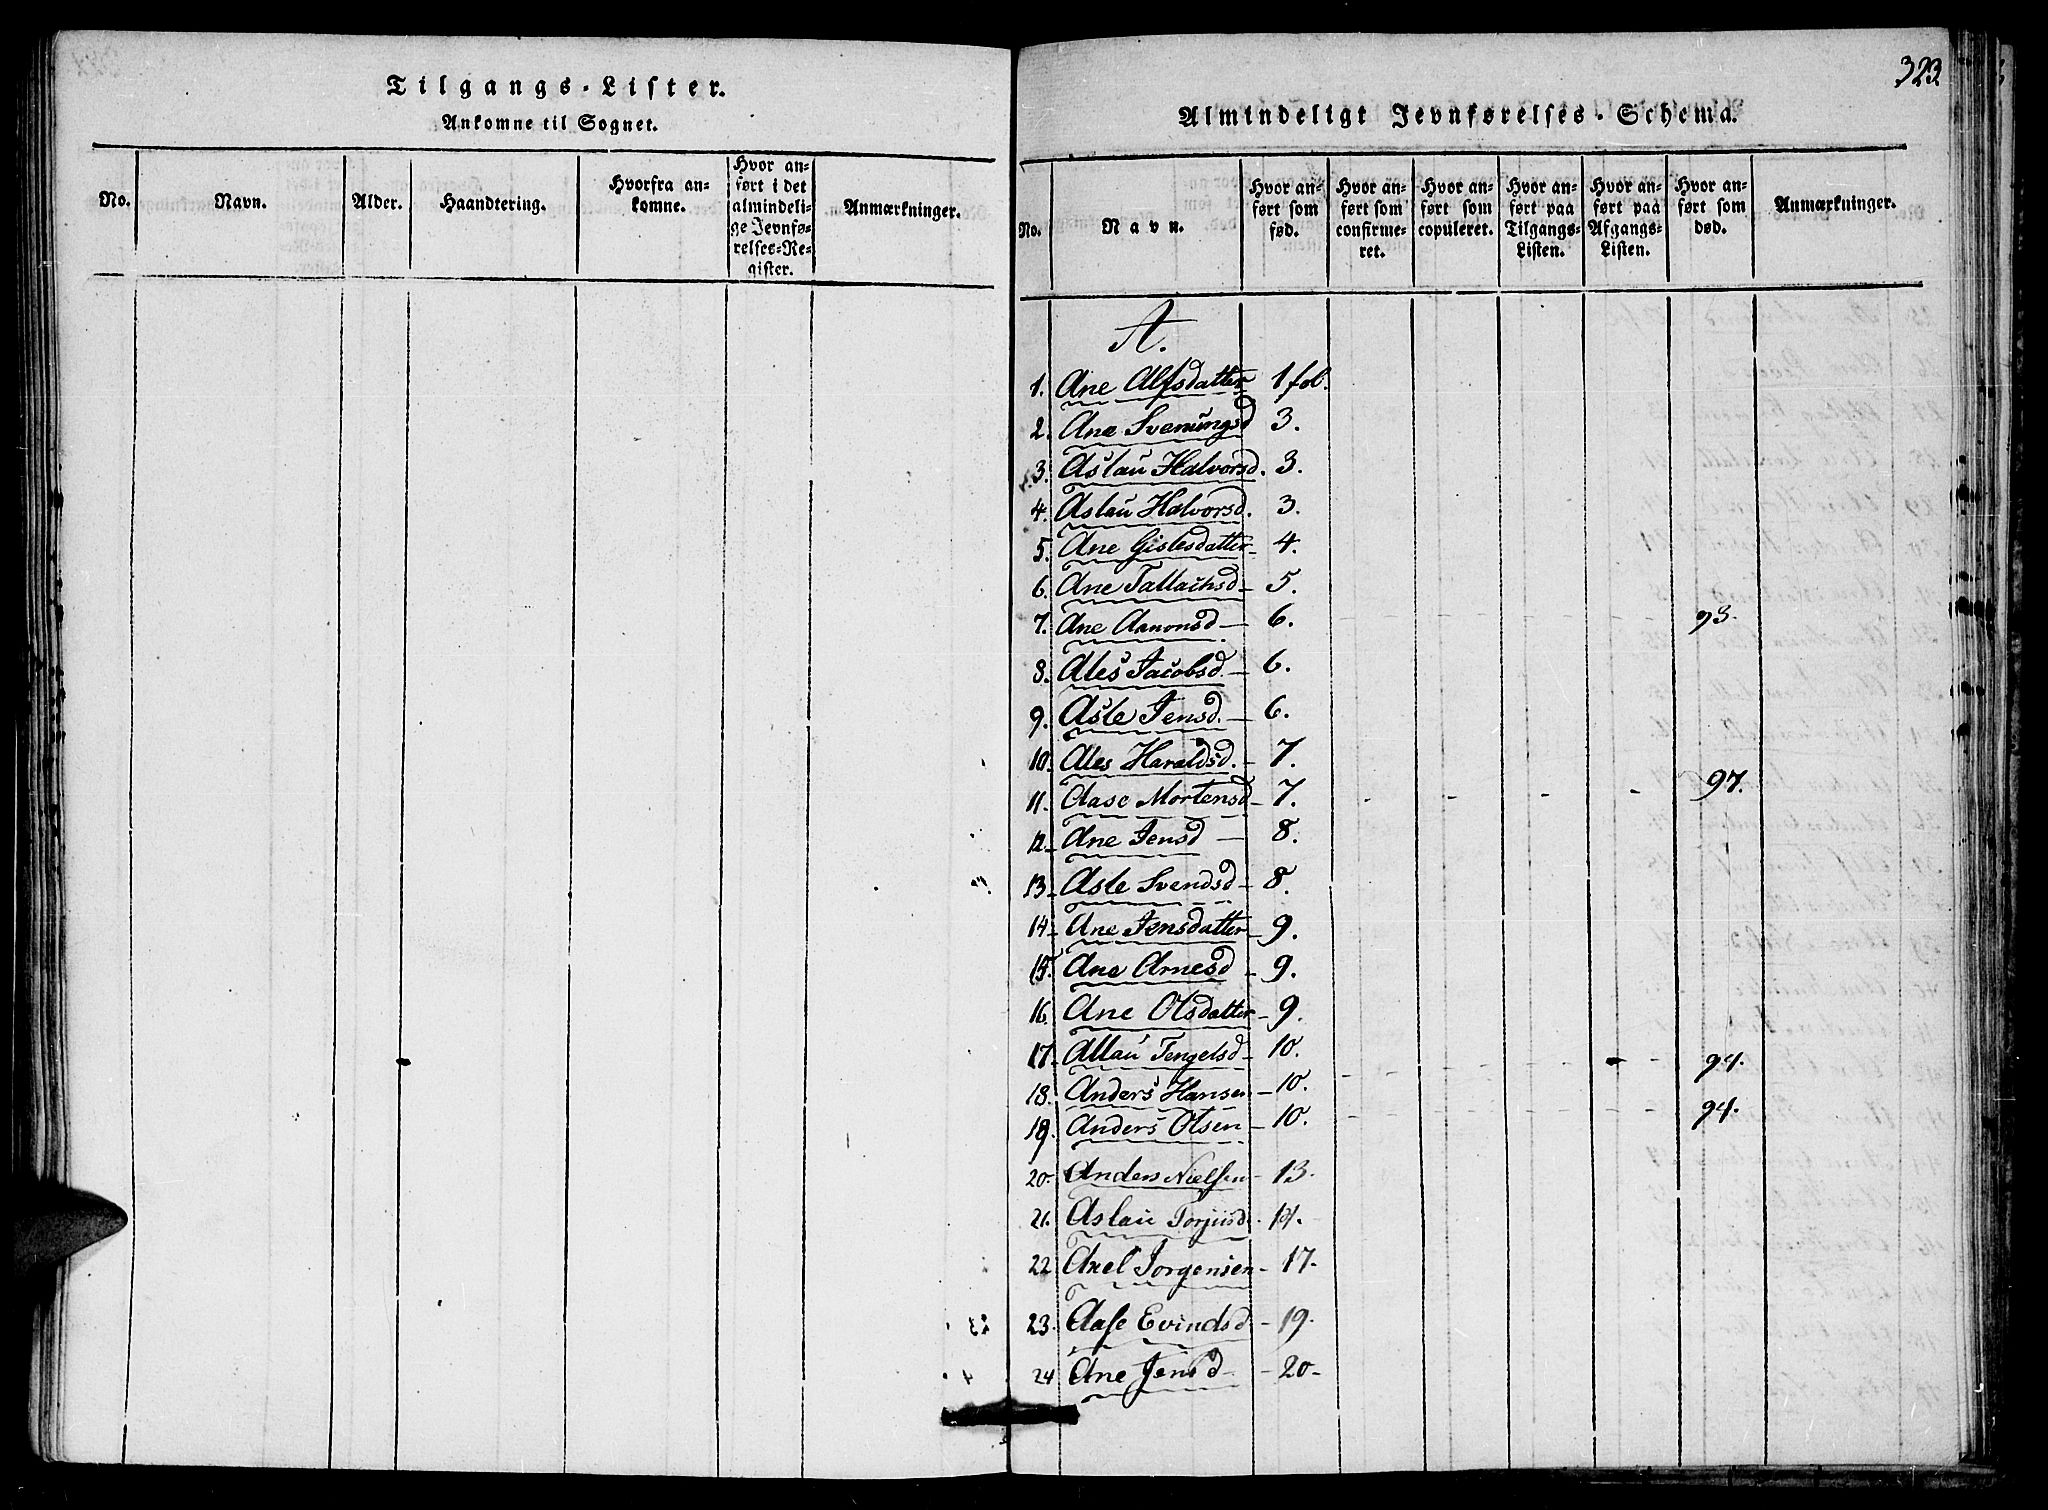 Tilgangs-Lister.
Ankomne til Sognet.
No.
Navn.
Alder.
Haandtering.
Hvorfra an-
komne.
Hvor an-
ført i det
almindeli-
ge Jevnfø-
relses-Re-
gister.
Anmærkninger.
323
Almindeligt Jevnførelses-Schema.
No.
Navn.
Hvor an-
ført som
fød.
Hvor an-
ført som
confirme-
ret.
Hvor an-
ført som
copuleret.
Hvor an-
ført paa
Tilgangs-
Listen.
Hvor an-
ført paa
Afgangs-
Listen.
Hvor an-
ført som
død.
Anmærkninger.
A.
1. Ane Alfsdatter 1 fol.
2. Ane Svenungsd 3.
3. Aslau Halvorsd. 3.
4. Aslau Halvorsd. 3.
5. Ane Gislesdatter 4.
6. Ane Tallachsd 5.
7. Ane Aanonsd 6. 93.
8. Ales Jacobsd 6.
9. Asle Jensd. 6.
10. Ales Haraldsd. 7.
11. Aase Mortensd 7. 97.
12. Ane Jensd 8.
13. Asle Svendsd 8.
14. Ane Jensdatter 9.
15. Ane Arnesd 9.
16. Ane Olsdatter 9.
17. Allau Tengelsd 10.
18. Anders Hansen 10. 94.
19. Anders Olsen 10. 94.
20. Anders Nielsen 13.
21. Aslau Torjusd 14.
22 Axel Jorgensen 17.
23. Aase Evindsd 19.
24 Ane Jensd 20